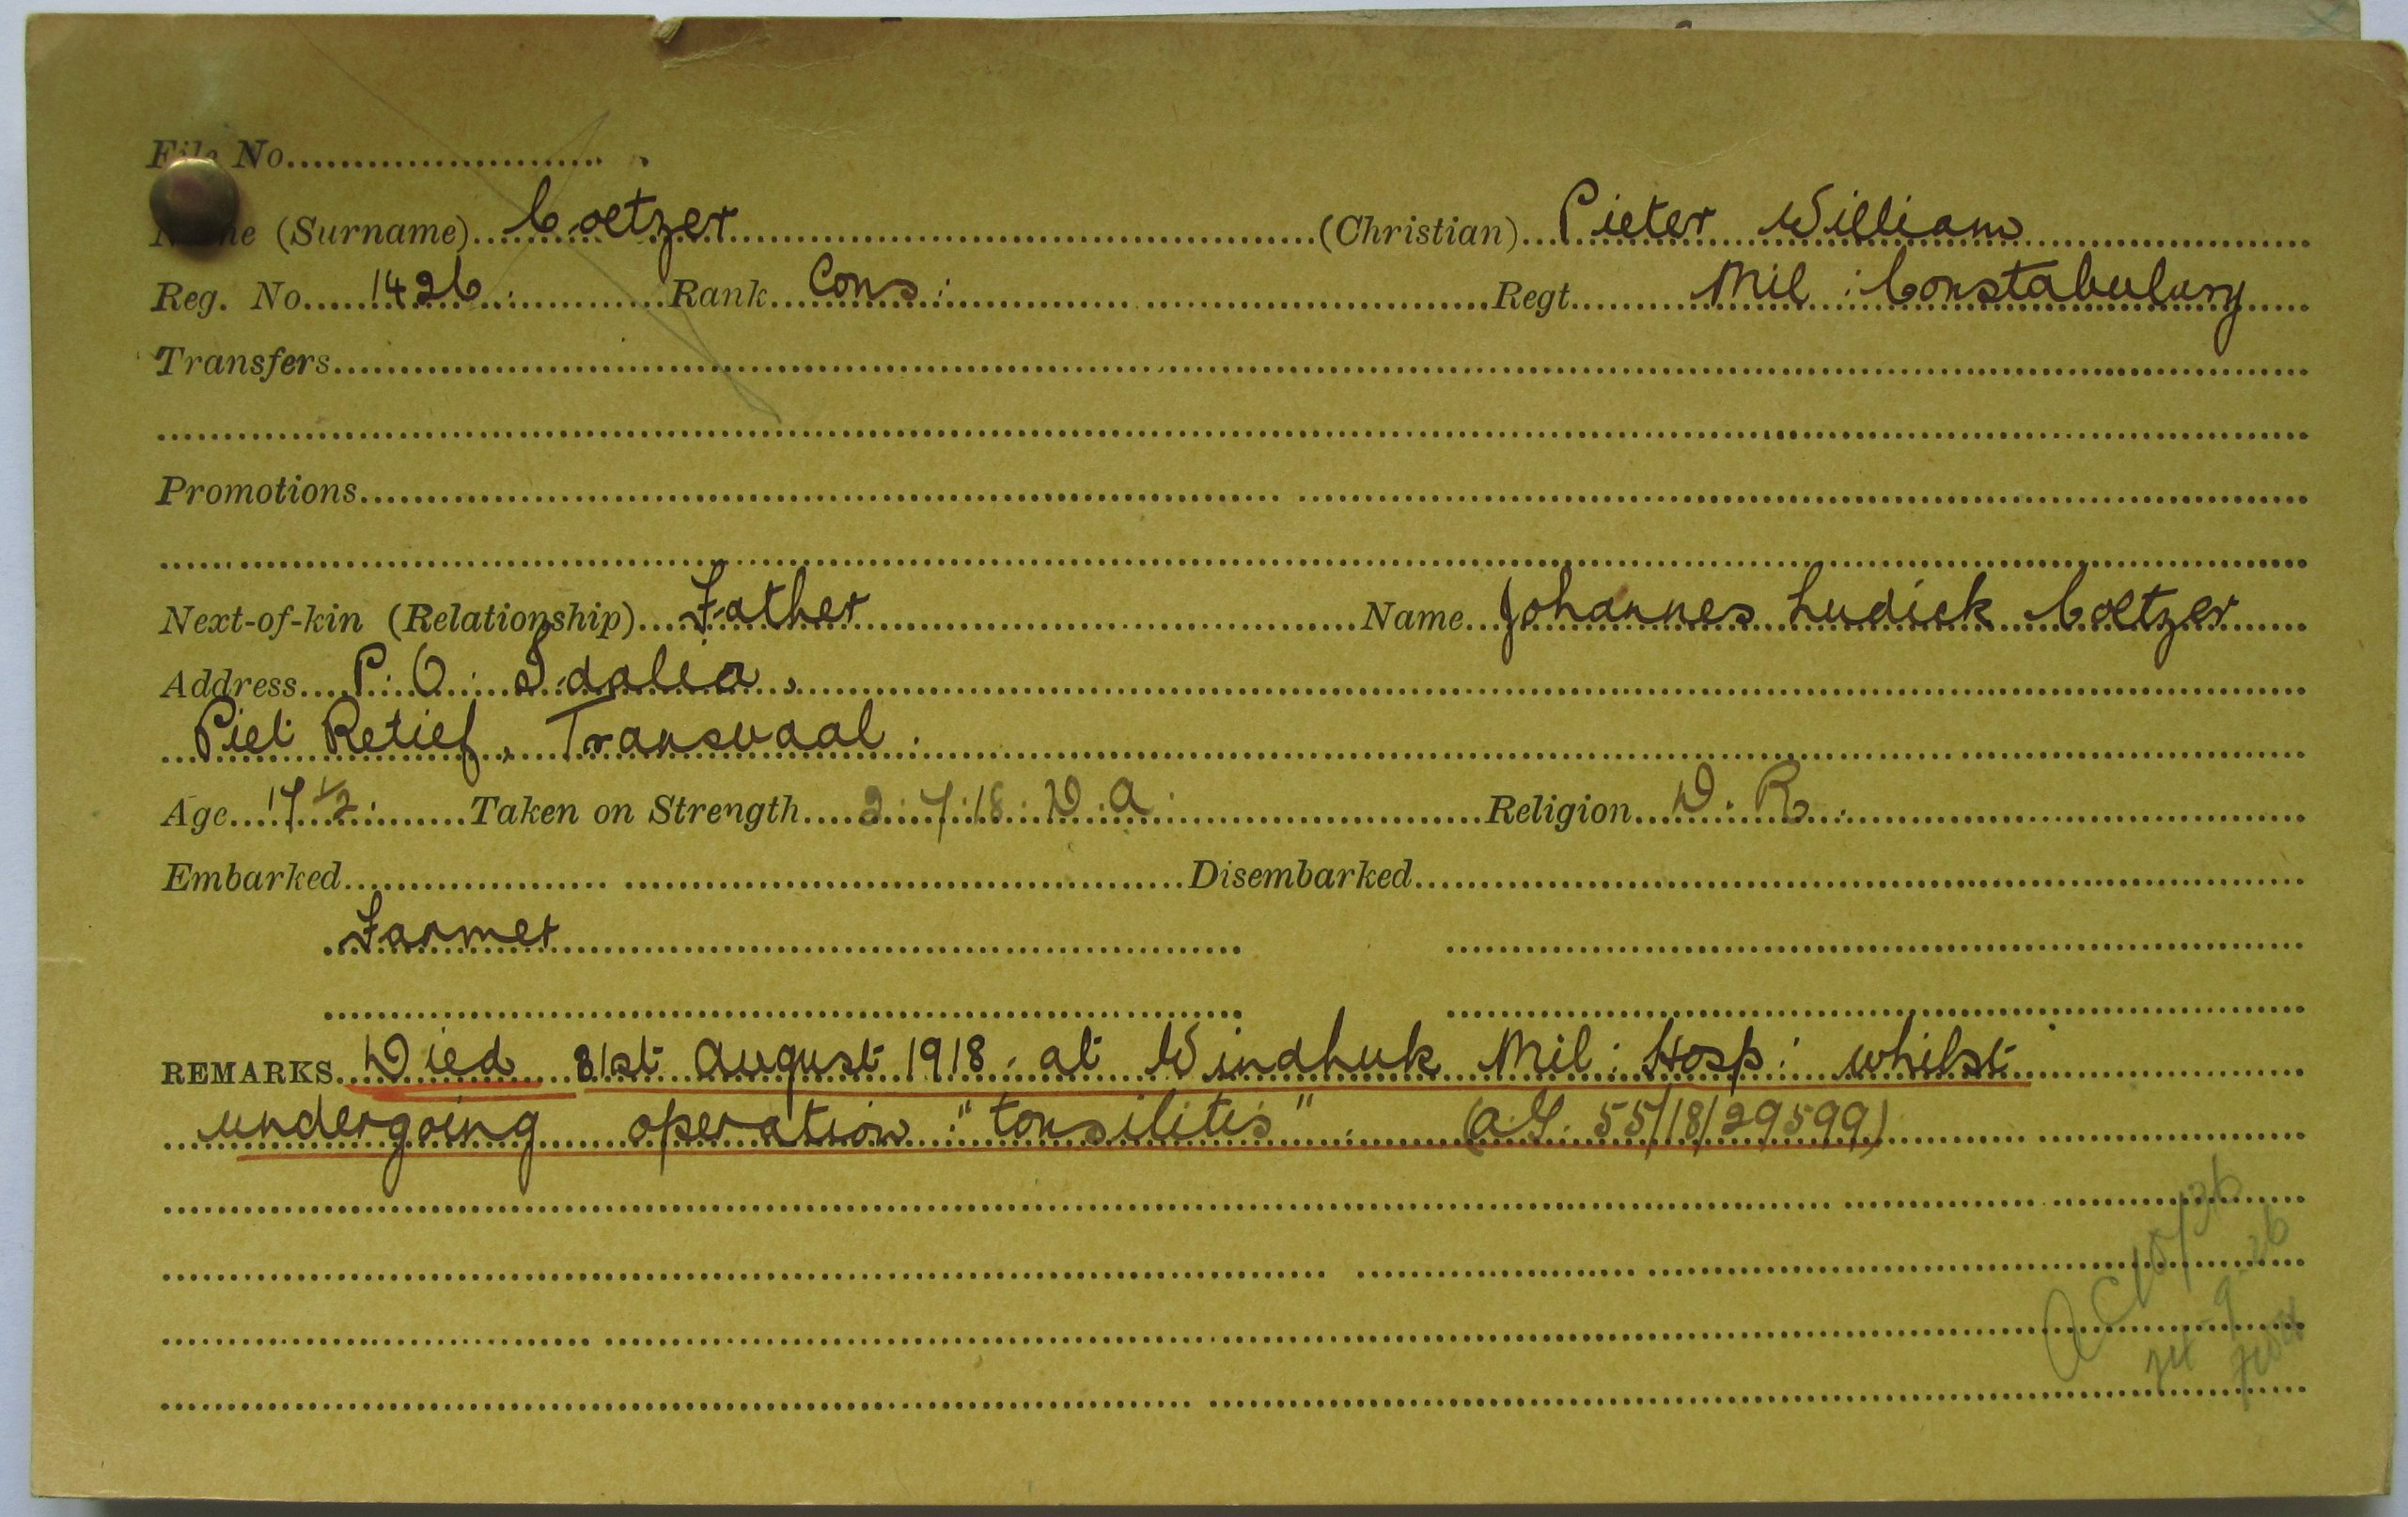 File No.
Name (Surname) Coetzer (Christian) Pieter William
Reg. No. 1426. Rank Cons: Regt. Mil: Constabulary
Transfers
Promotions
Next-of-kin (Relationship) Father Name Johannes Ludick Coetzer
Address P.O. Idalia,
Piet Retief, Transvaal.
Age 17½. Taken on Strength 2.7.18. D.A. Religion D.R.
Embarked Disembarked
Farmer
REMARKS. Died 31st August 1918. at Windhuk Mil: Hosp: whilst
undergoing operation "tonsilitis". (A.G. 55/18/29599)